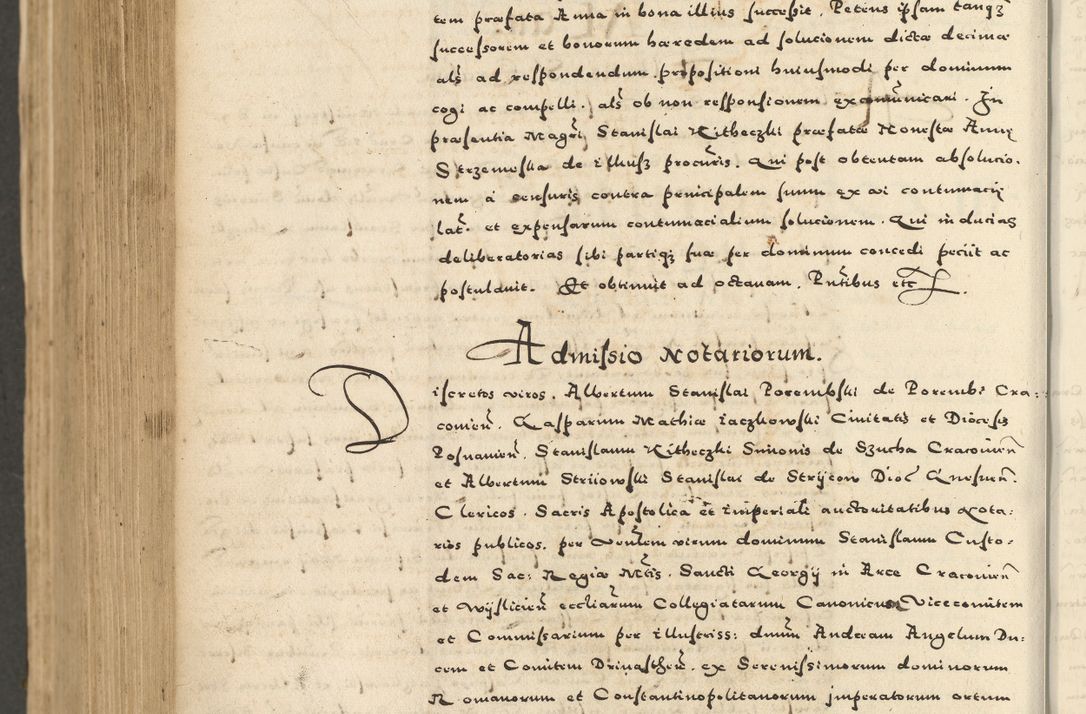 tem præfata Anna in bona illius successit. Petens ipsam tanqz
successorem et bonorum hæredem ad solucionem dictæ decimæ
als ad respondendum propositioni huiusmodi per dominum
cogi ac compelli. als ob non responsionem excomunicari. In
præsentia Magri Stanislai Kitheczki præfatæ Honestæ Annę
Strzemeska de illiusz procuris. Qui post obtentam absolucio-
nem á censuris contra principalem suum ex vi contumacię
lat. et expensarum contumacialium solucionem. Qui inducias
deliberatorias sibi partiqz suæ per dominum concedi peciit ac
postulauit. Et obtinuit ad octauam. Pntibus etc
Admissio Notariorum.
Discretos viros. Albertum Stanislai Porembski de Porembi Cra:
couien. Gasparum Mathiæ Iaczkowski Ciuitatis et Diocesis
Posnanien. Stanislaum Kitheczki Simonis de Szucha Cracouien
et Albertum Striiowski Stanislai de Strijcow Dioc Gnesnen.
Clericos. Sacris Apostolica et imperiali auctoritatibus Nota:
rios publicos. per Venlem virum dominum Stanislaum Custo-
dem Sac: Regiæ Mtis. Sancti Georgij in Arce Cracouien
et Wijslicien eccliarum Collegiatarum Canonicum Vicecomitem
et Commissarium per illustriss: dnum Andream Angelum Du:
cem et Comitem Drinasthen. ex Serenissimorum dominorum
Romanorum et Constantinopolitanorum imperatorum ortum